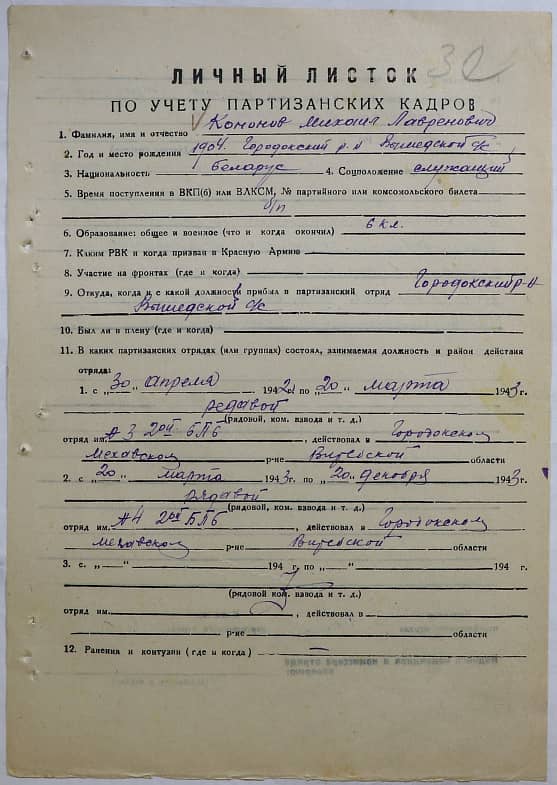 30
ЛИЧНЫЙ ЛИСТОК
ПО УЧЕТУ ПАРТИЗАНСКИХ КАДРОВ
1. Фамилия, имя и отчество Кононов Михаил Лавренович
2. Год и место рождения 1904. Городокский р-н Вышедской с/с
3. Национальность беларус 4. Соцположение служащий
5. Время поступления в ВКП(б) или ВЛКСМ, № партийного или комсомольского билета
б/п
6. Образование: общее и военное (что и когда окончил) 6 кл.
7. Каким РВК и когда призван в Красную Армию
8. Участие на фронтах (где и когда)
9. Откуда, когда и с какой должности прибыл в партизанский отряд Городокский р-н
Вышедской с/с
10. Был ли в плену (где и когда)
11. В каких партизанских отрядах (или группах) состоял, занимаемая должность и район действия
отряда:
1. с „30" апреля 1942 г. по „20" марта 1943 г.
редавой
(рядовой, ком. взвода и т. д.)
отряд им. №3 2ой БПБ, действовал в Городокском
Меховском р-не Витебской области
2. с „20" марта 1943 г. по „20" декабря 1943 г.
рядавой
(рядовой, ком. взвода и т. д.)
отряд им. №4 2ой БПБ, действовал в Городокском
Меховском р-не Витебской области
3. с „—" 194 г. по „—" 194 г.
(рядовой ком. взвода и т. д.)
отряд им. , действовал в
р-не области
12. Ранения и контузии (где и когда) —